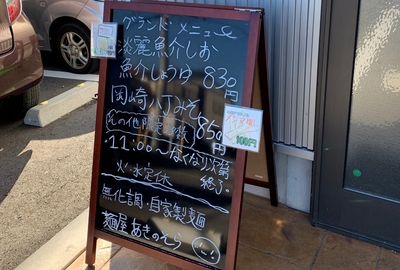 グランド・メニュー
淡麗魚介しお
魚介しょうゆ 830円
岡崎八丁みそ
その他限定麺 850円
・11:00〜なくなり次第
終了・
火・水定休
無化調・自家製麺
麺屋 あきのそら
100円